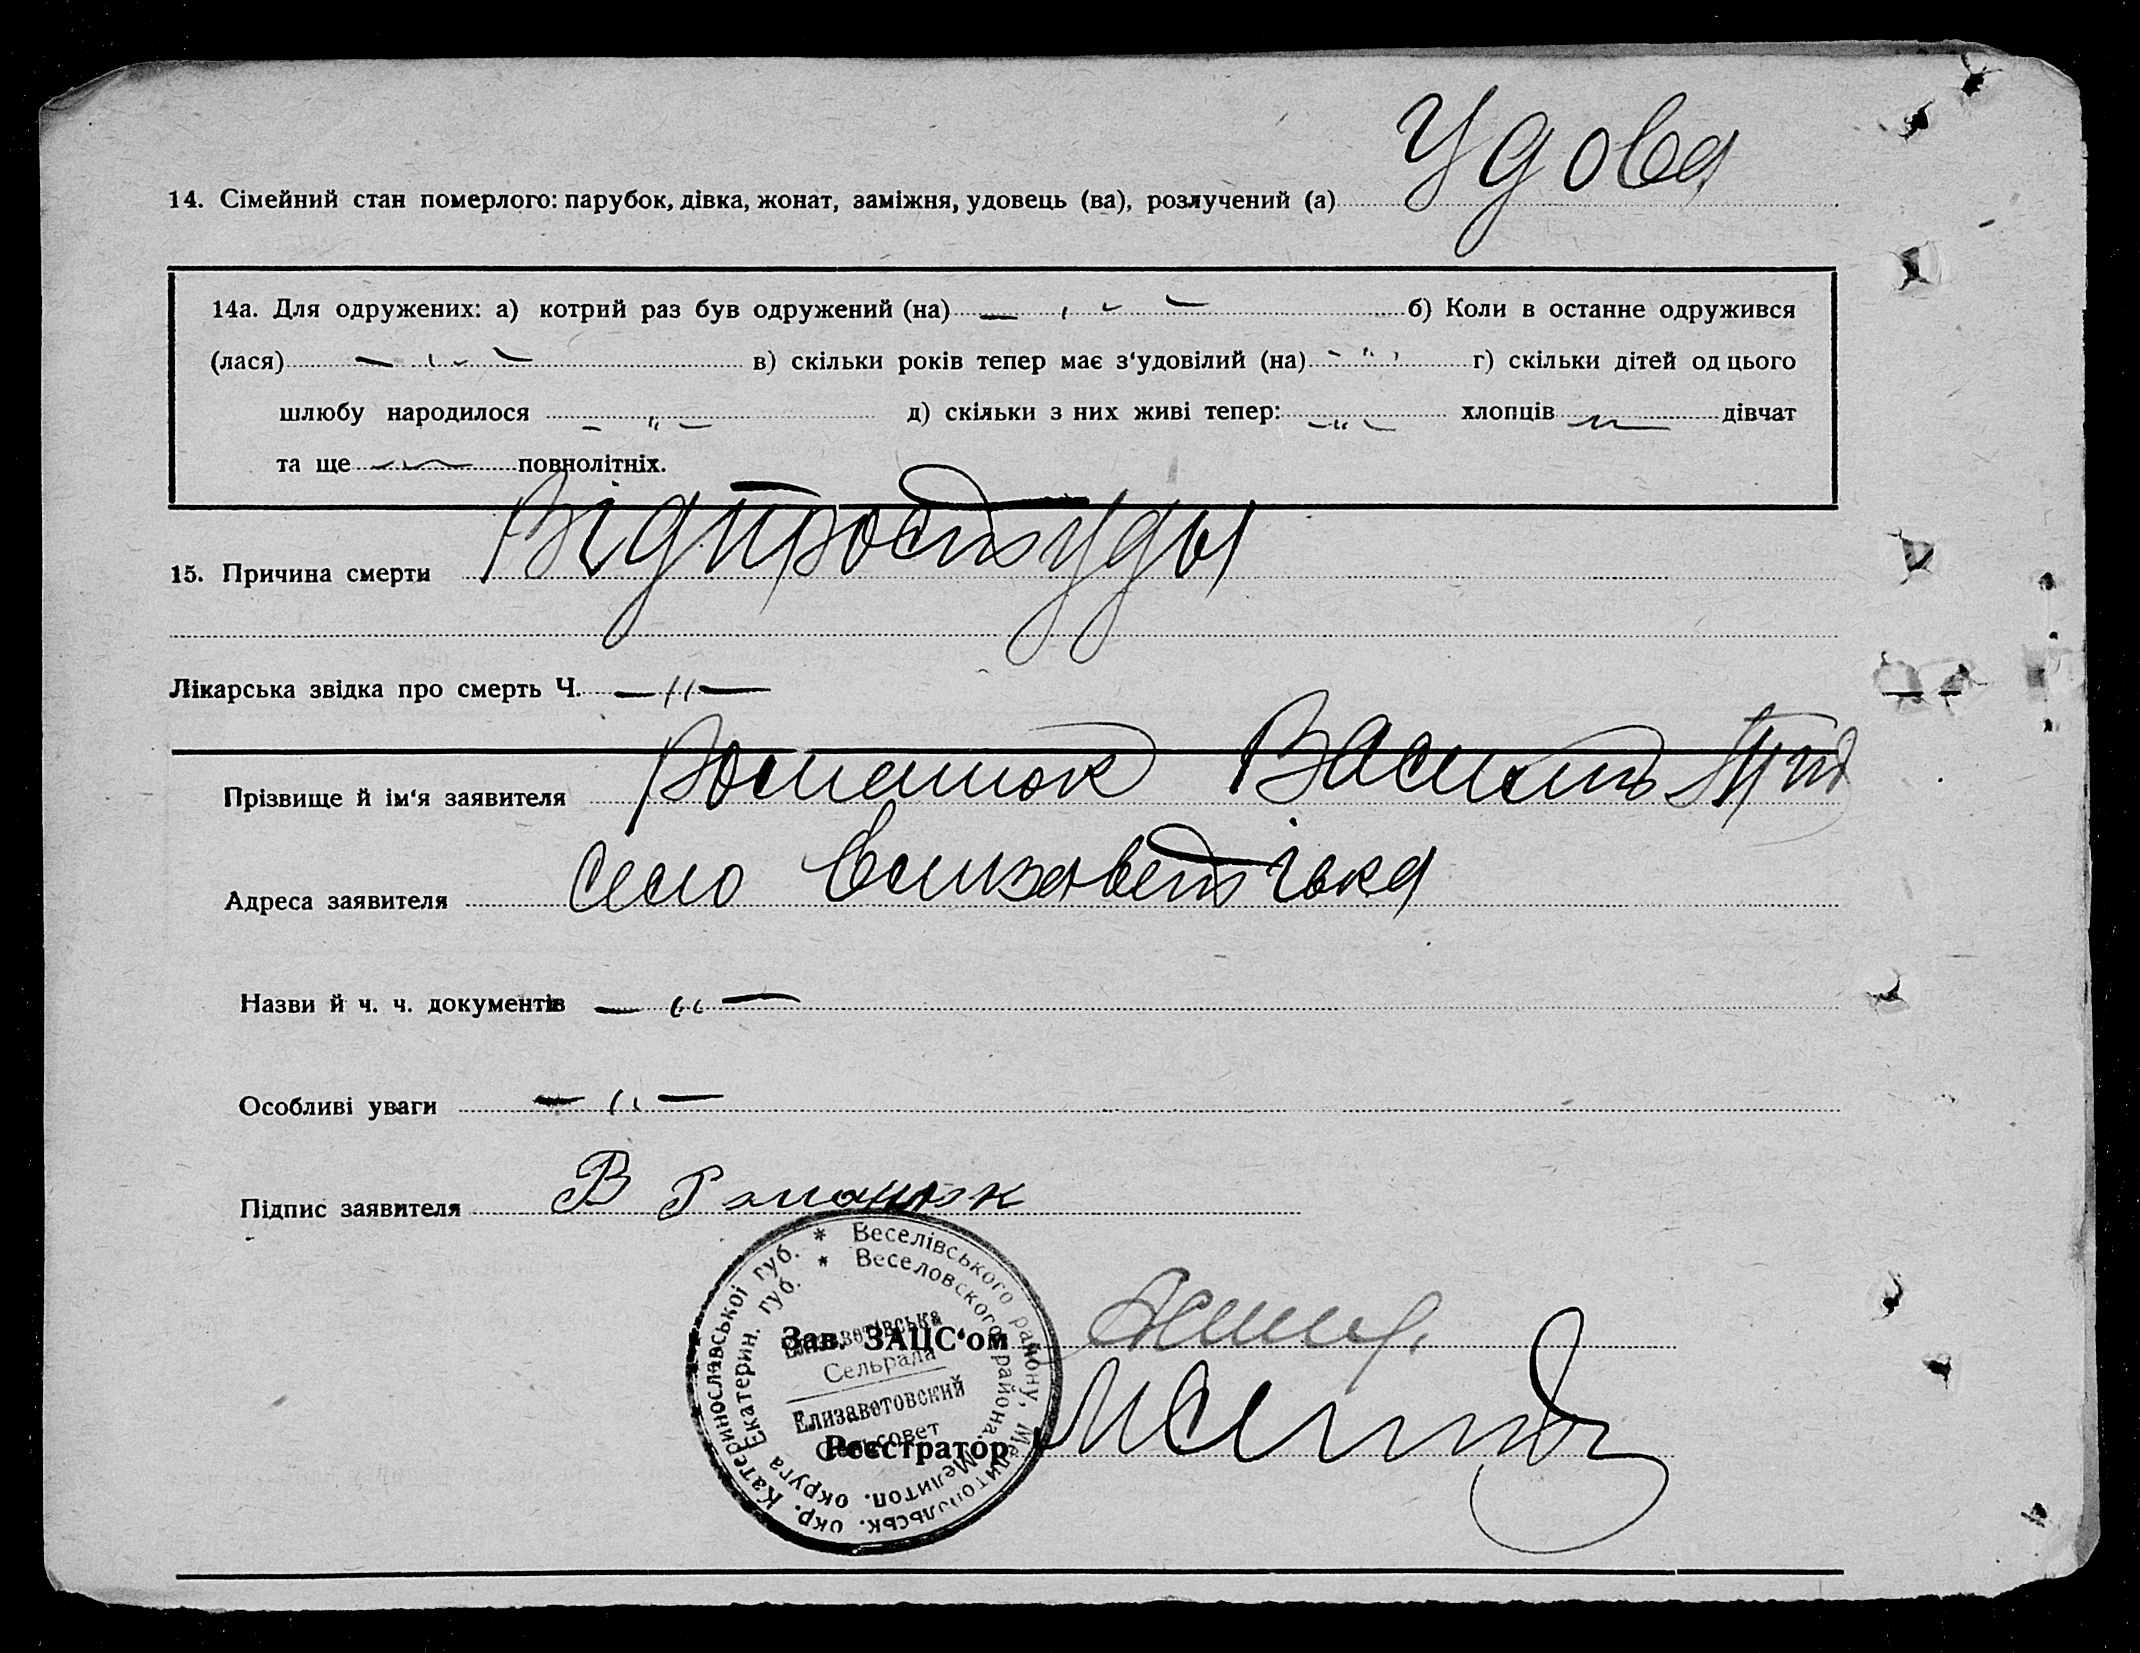 14. Сімейний стан померлого: парубок, дівка, жонат, заміжня, удовець (ва), розлучений (а) Удова
14а. Для одружених: а) котрий раз був одружений (на) — " — б) Коли в останне одружився
(лася) — " — в) скільки років тепер має з'удовілий (на) — " — г) скільки дітей од цього
шлюбу народилося — " — д) скільки з них живі тепер: — " — хлопців — " — дівчат
та ще — " — повнолітніх.
15. Причина смерти Від простуды
Лікарська звідка про смерть Ч. — " —
Прізвище й ім'я заявителя Романюк Василь
Адреса заявителя село Елизаветівка
Назви й ч. ч. документів — " —
Особливі уваги — " —
Підпис заявителя В Романюк
* Веселівського району, Мелитопольськ. окр. Катеринославської губ.
* Веселовского района. Мелитоп. округа Екатерин. губ.
Елизаветівська
Сельрада
Елизаветовский
Сельсовет
Зав. ЗАЦС'ом
Реєстратор